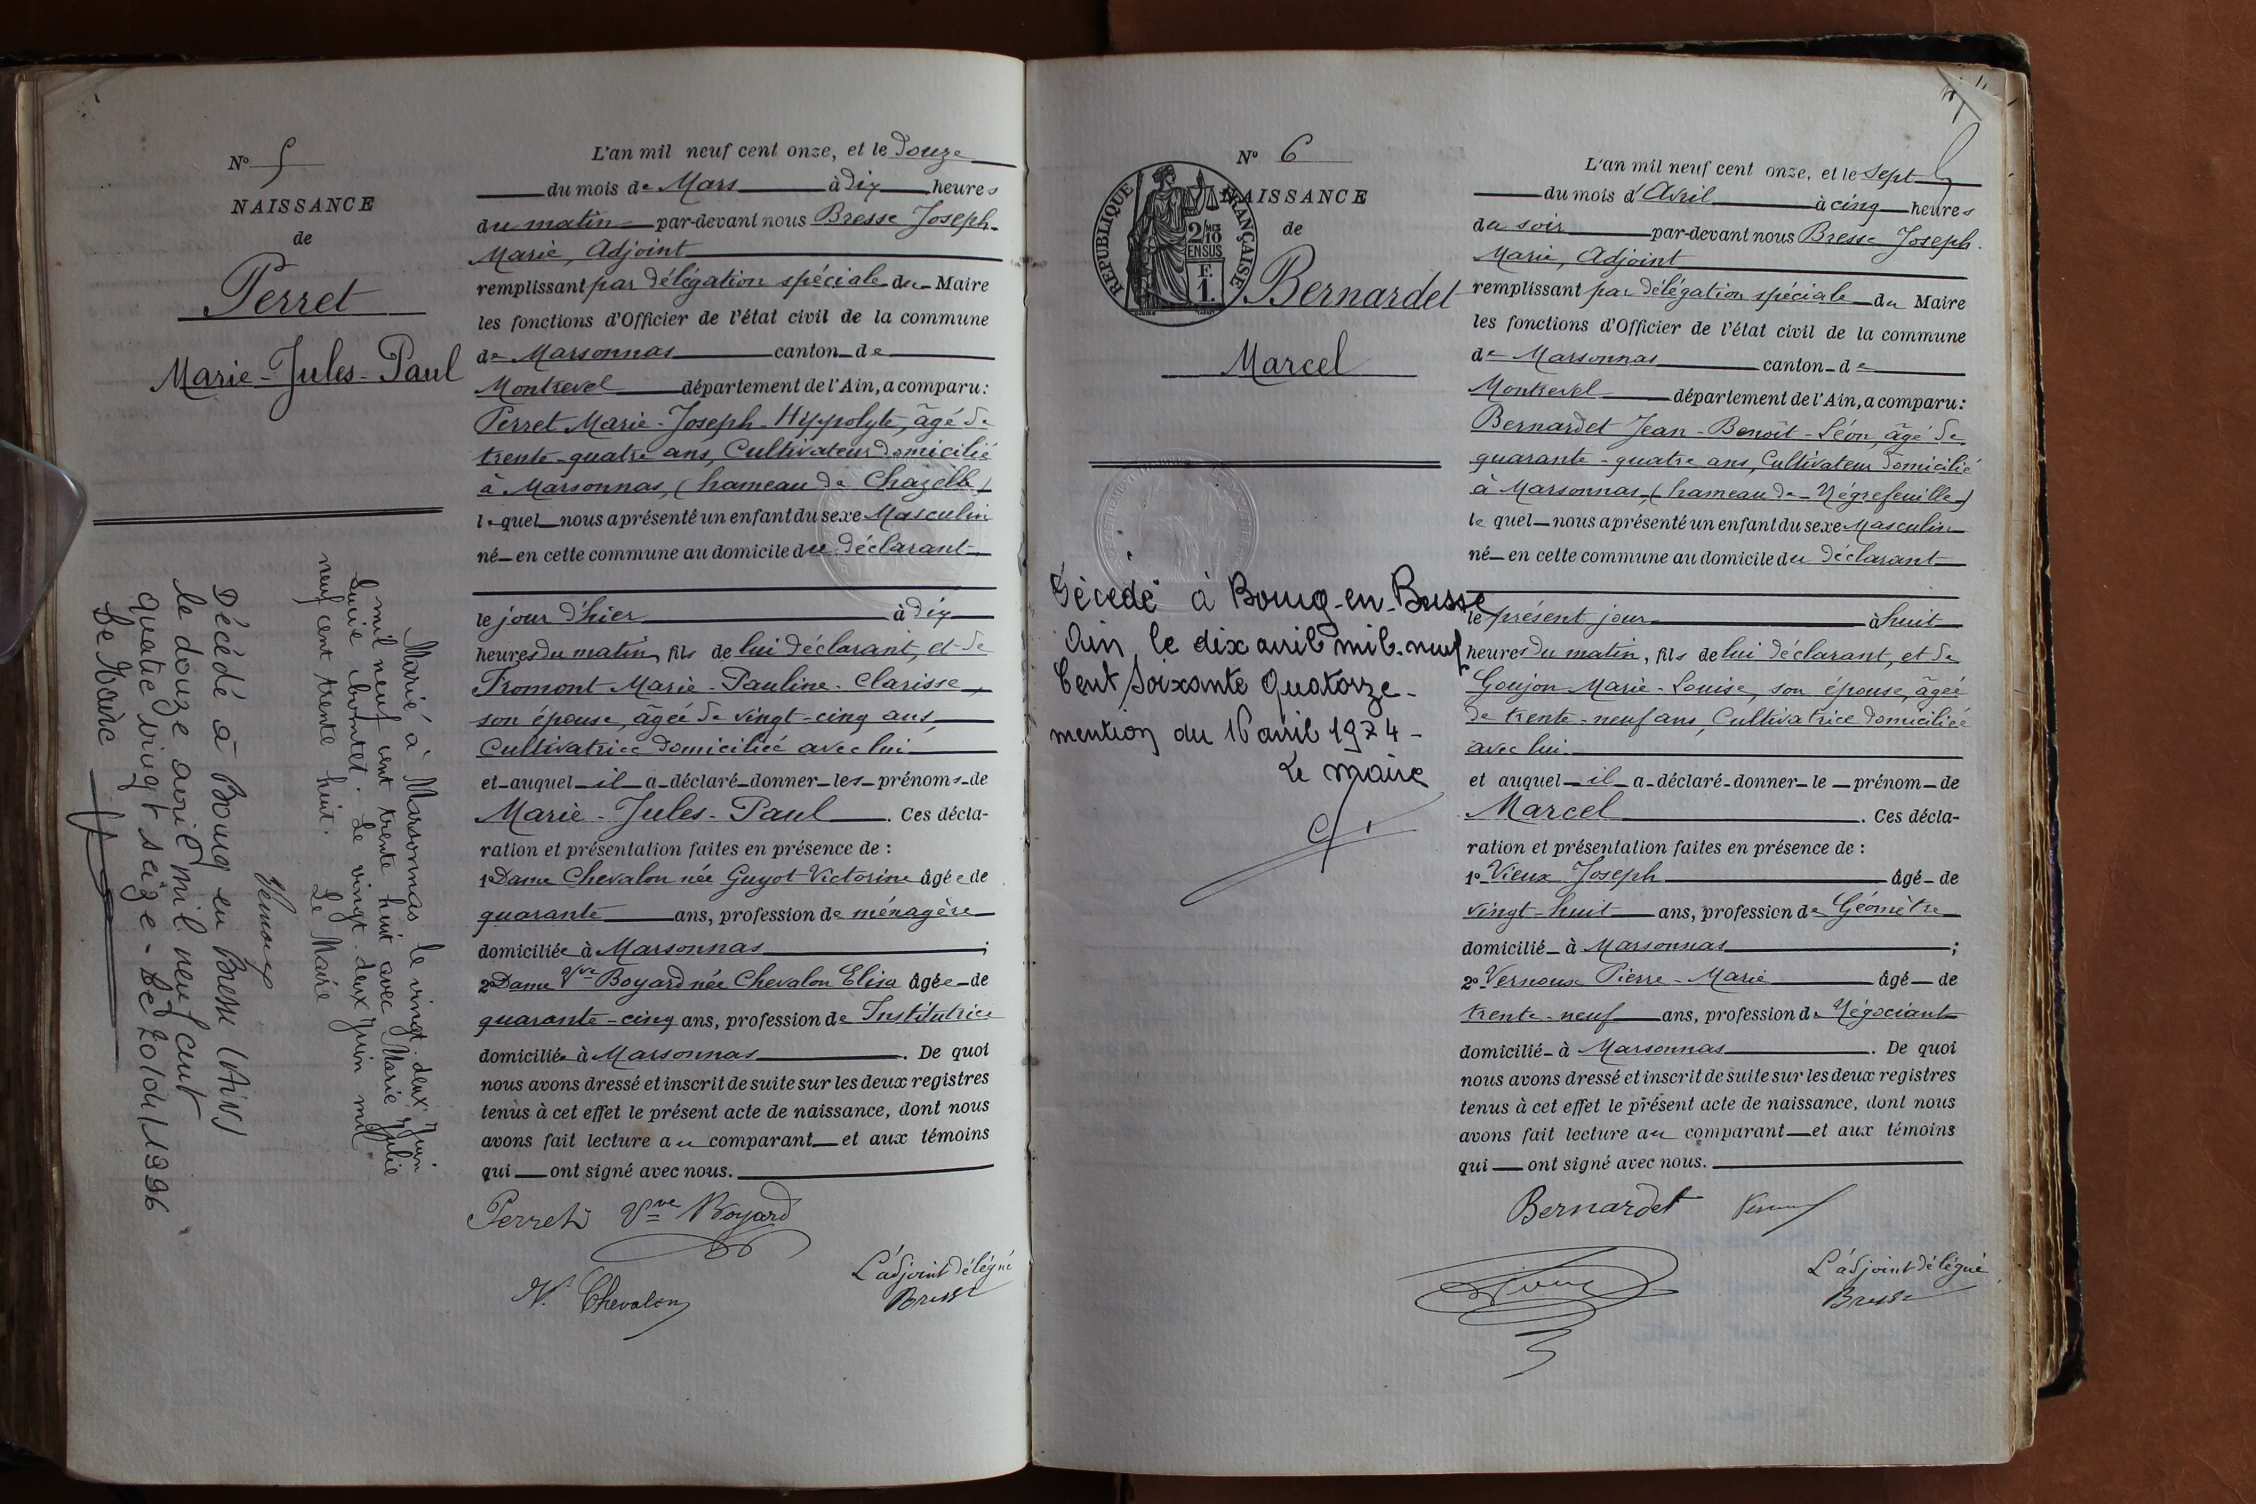 N° 5
NAISSANCE
de
Perret
Marie-Jules-Paul
Marié à Marsonnas le vingt-deux juin
mil neuf cent trente huit avec Marie Julie
Lucie Montet. Le vingt-deux juin mil
neuf cent trente huit. Le Maire
Vernoux
Décédé à Bourg en Bresse (Ain)
le douze avril mil neuf cent
quatre vingt seize - Le 20/04/1996
Le Maire
L'an mil neuf cent onze, et le Douze
du mois de Mars à Dix heures
du matin par-devant nous Bresse Joseph-
Marie, Adjoint
remplissant par délégation spéciale du Maire
les fonctions d'Officier de l'état civil de la commune
de Marsonnas canton de
Montrevel département de l'Ain, a comparu :
Perret Marie-Joseph-Hippolyte, âgé de
trente-quatre ans, Cultivateur domicilié
à Marsonnas, (hameau de Chazelle)
lequel nous a présenté un enfant du sexe Masculin
né en cette commune au domicile du déclarant
le jour d'hier à dix
heures du matin, fils de lui déclarant, et de
Promont Marie-Pauline-Clarisse,
son épouse, âgée de vingt-cinq ans,
Cultivatrice domiciliée avec lui
et auquel il a déclaré donner les prénoms de
Marie-Jules-Paul. Ces décla-
ration et présentation faites en présence de :
1° Dame Chevalon née Guyot Victorine âgée de
quarante ans, profession de ménagère
domiciliée à Marsonnas ;
2° Dame Vve Boyard née Chevalon Elisa âgée de
quarante-cinq ans, profession de Institutrice
domiciliée à Marsonnas. De quoi
nous avons dressé et inscrit de suite sur les deux registres
tenus à cet effet le présent acte de naissance, dont nous
avons fait lecture au comparant et aux témoins
qui ont signé avec nous.
Perret Vve Boyard
L'adjoint délégué
V. Chevalon Bresse
N° 6
NAISSANCE
de
Bernardet
Marcel
REPUBLIQUE FRANÇAISE
2/10
EN SUS
F.
1.
Décédé à Bourg-en-Bresse
Ain le dix avril mil-neuf
Cent Soixante Quatorze-
mention du 16 avril 1974-
Le maire
L'an mil neuf cent onze, et le Sept
du mois d'Avril à cinq heures
du soir par-devant nous Bresse Joseph-
Marie, Adjoint
remplissant par délégation spéciale du Maire
les fonctions d'Officier de l'état civil de la commune
de Marsonnas canton de
Montrevel département de l'Ain, a comparu :
Bernardet Jean-Benoît-Léon, âgé de
quarante-quatre ans, Cultivateur domicilié
à Marsonnas, (hameau de Négrefeuille)
lequel nous a présenté un enfant du sexe Masculin
né en cette commune au domicile du déclarant
le présent jour à huit
heures du matin, fils de lui déclarant, et de
Goujon Marie-Louise, son épouse, âgée
de trente-neuf ans, Cultivatrice domiciliée
avec lui
et auquel il a déclaré donner le prénom de
Marcel. Ces décla-
ration et présentation faites en présence de :
1° Vieux Joseph âgé de
vingt-huit ans, profession de Géomètre
domicilié à Marsonnas ;
2° Vernoux Pierre-Marie âgé de
trente-neuf ans, profession de Négociant
domicilié à Marsonnas. De quoi
nous avons dressé et inscrit de suite sur les deux registres
tenus à cet effet le présent acte de naissance, dont nous
avons fait lecture au comparant et aux témoins
qui ont signé avec nous.
Bernardet
L'adjoint délégué
Bresse